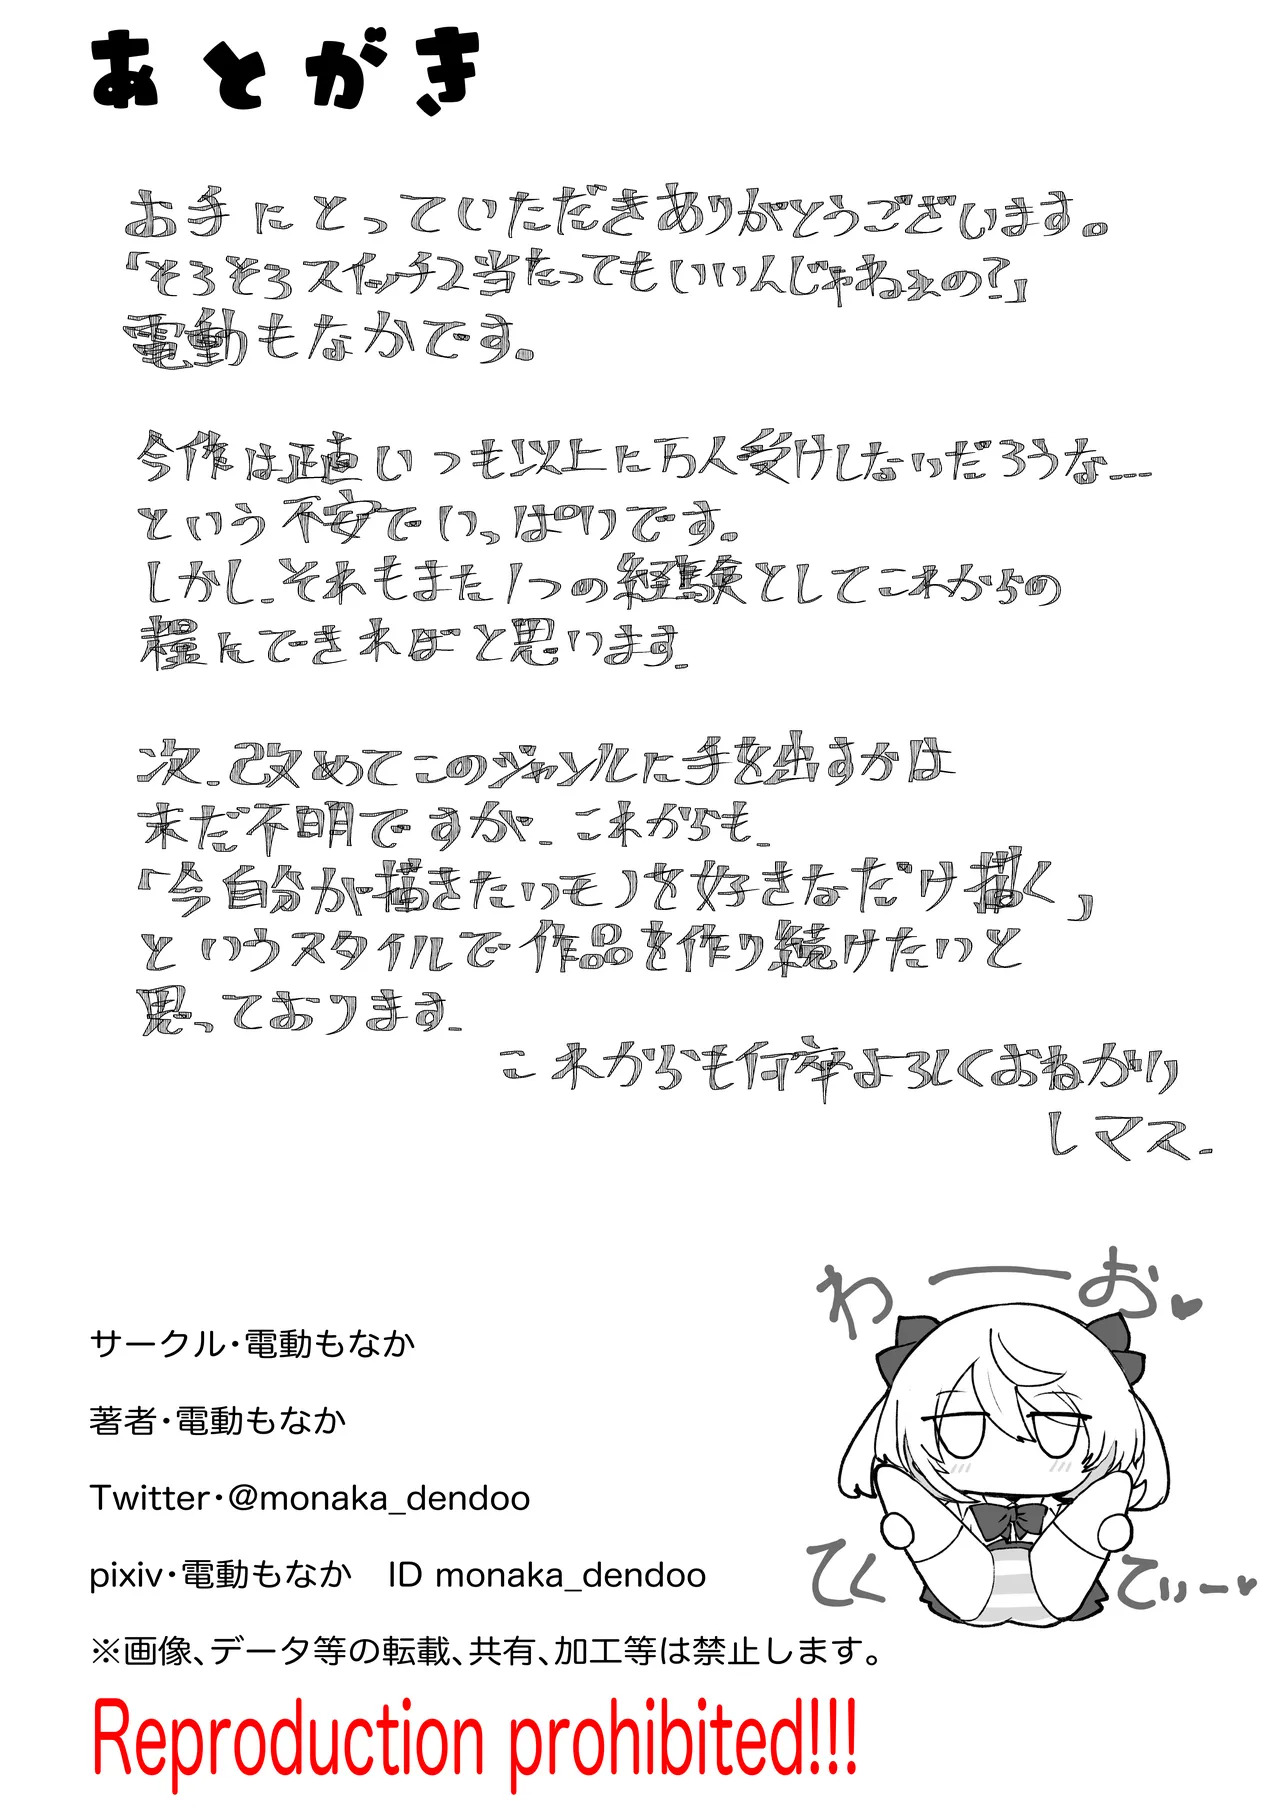 あとがき
お手にとっていただきありがとうございます。
「そろそろスイッチ2当たってもいいんじゃねぇの?」
電動もなかです。
今作は正直いつも以上に万人受けしないだろうな...
という不安でいっぱいです。
しかし、それもまた1つの経験としてこれからの
糧んできればと思います。
次、改めてこのジャンルに手を出すかは
未だ不明ですが、これからも、
「今自分が描きたいモノを好きなだけ描く」
というスタイルで作品を作り続けたいと
思っております。
これからも何卒よろしくおねがい
しマス。
わーお♥
てくてぃー♥
サークル・電動もなか
著者・電動もなか
Twitter・@monaka_dendoo
pixiv・電動もなか　ID monaka_dendoo
※画像、データ等の転載、共有、加工等は禁止します。
Reproduction prohibited!!!